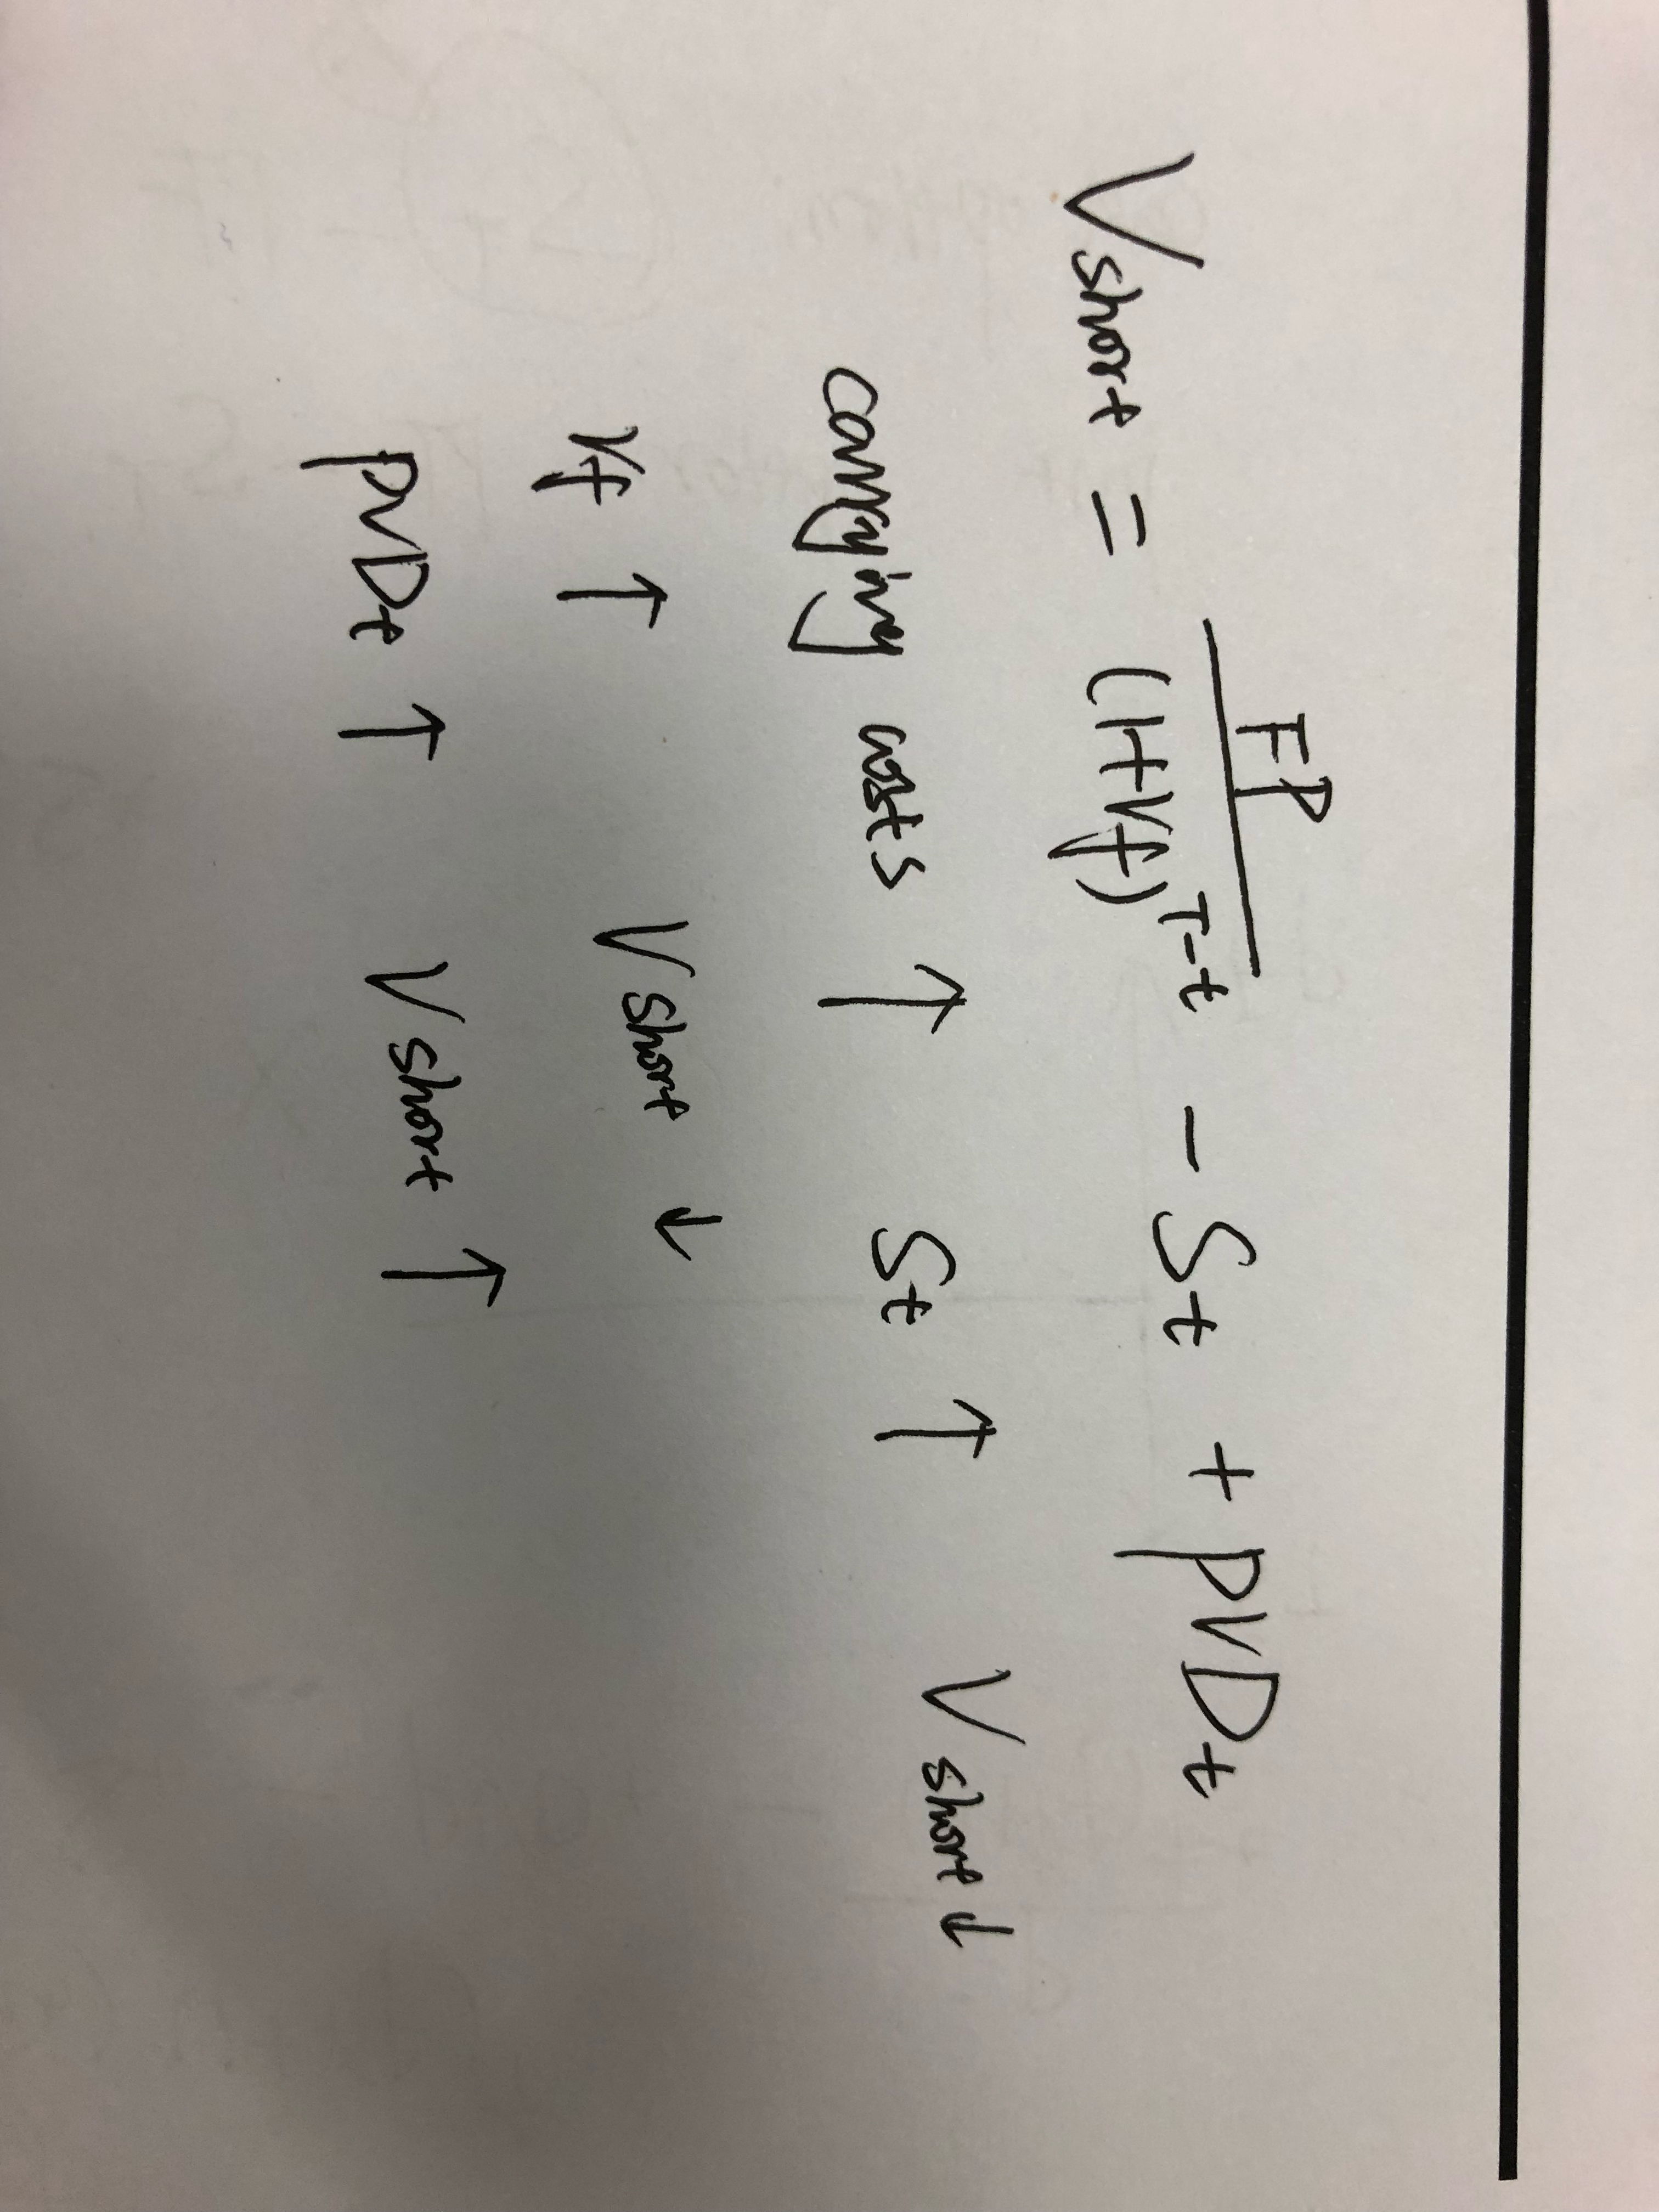 Vshort = FP / (1+rf)^T-t - St + PVDt
carrying costs ↑ St ↑ Vshort ↓
rf ↑ Vshort ↓
PVDt ↑ Vshort ↑